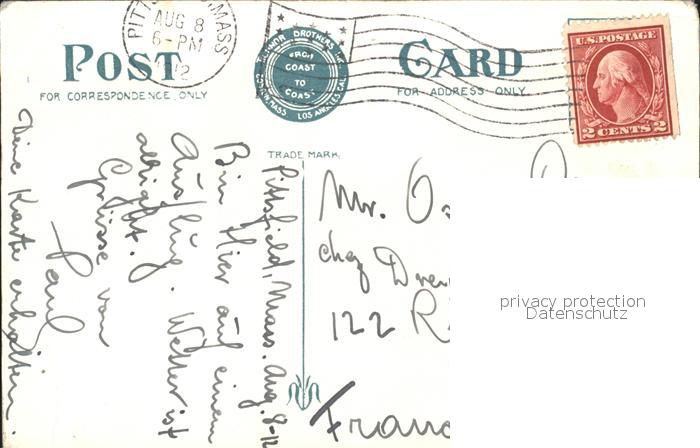 PITTS MASS
AUG 8
6-PM
12
POST CARD
FOR CORRESPONDENCE ONLY
FOR ADDRESS ONLY
BROTHERS
FROM
COAST
TO
COAST
MASS. LOS ANGELES CAL.
TRADE MARK
U.S. POSTAGE
2 CENTS 2
Pittsfield, Mass. Aug. 8-12
Bin hier auf einem
Ausflug. Wetter ist
allright.
Grüsse von
Paul
Deine Karte erhalten.
Mr.
chez
122 R
Franc
privacy protection
Datenschutz